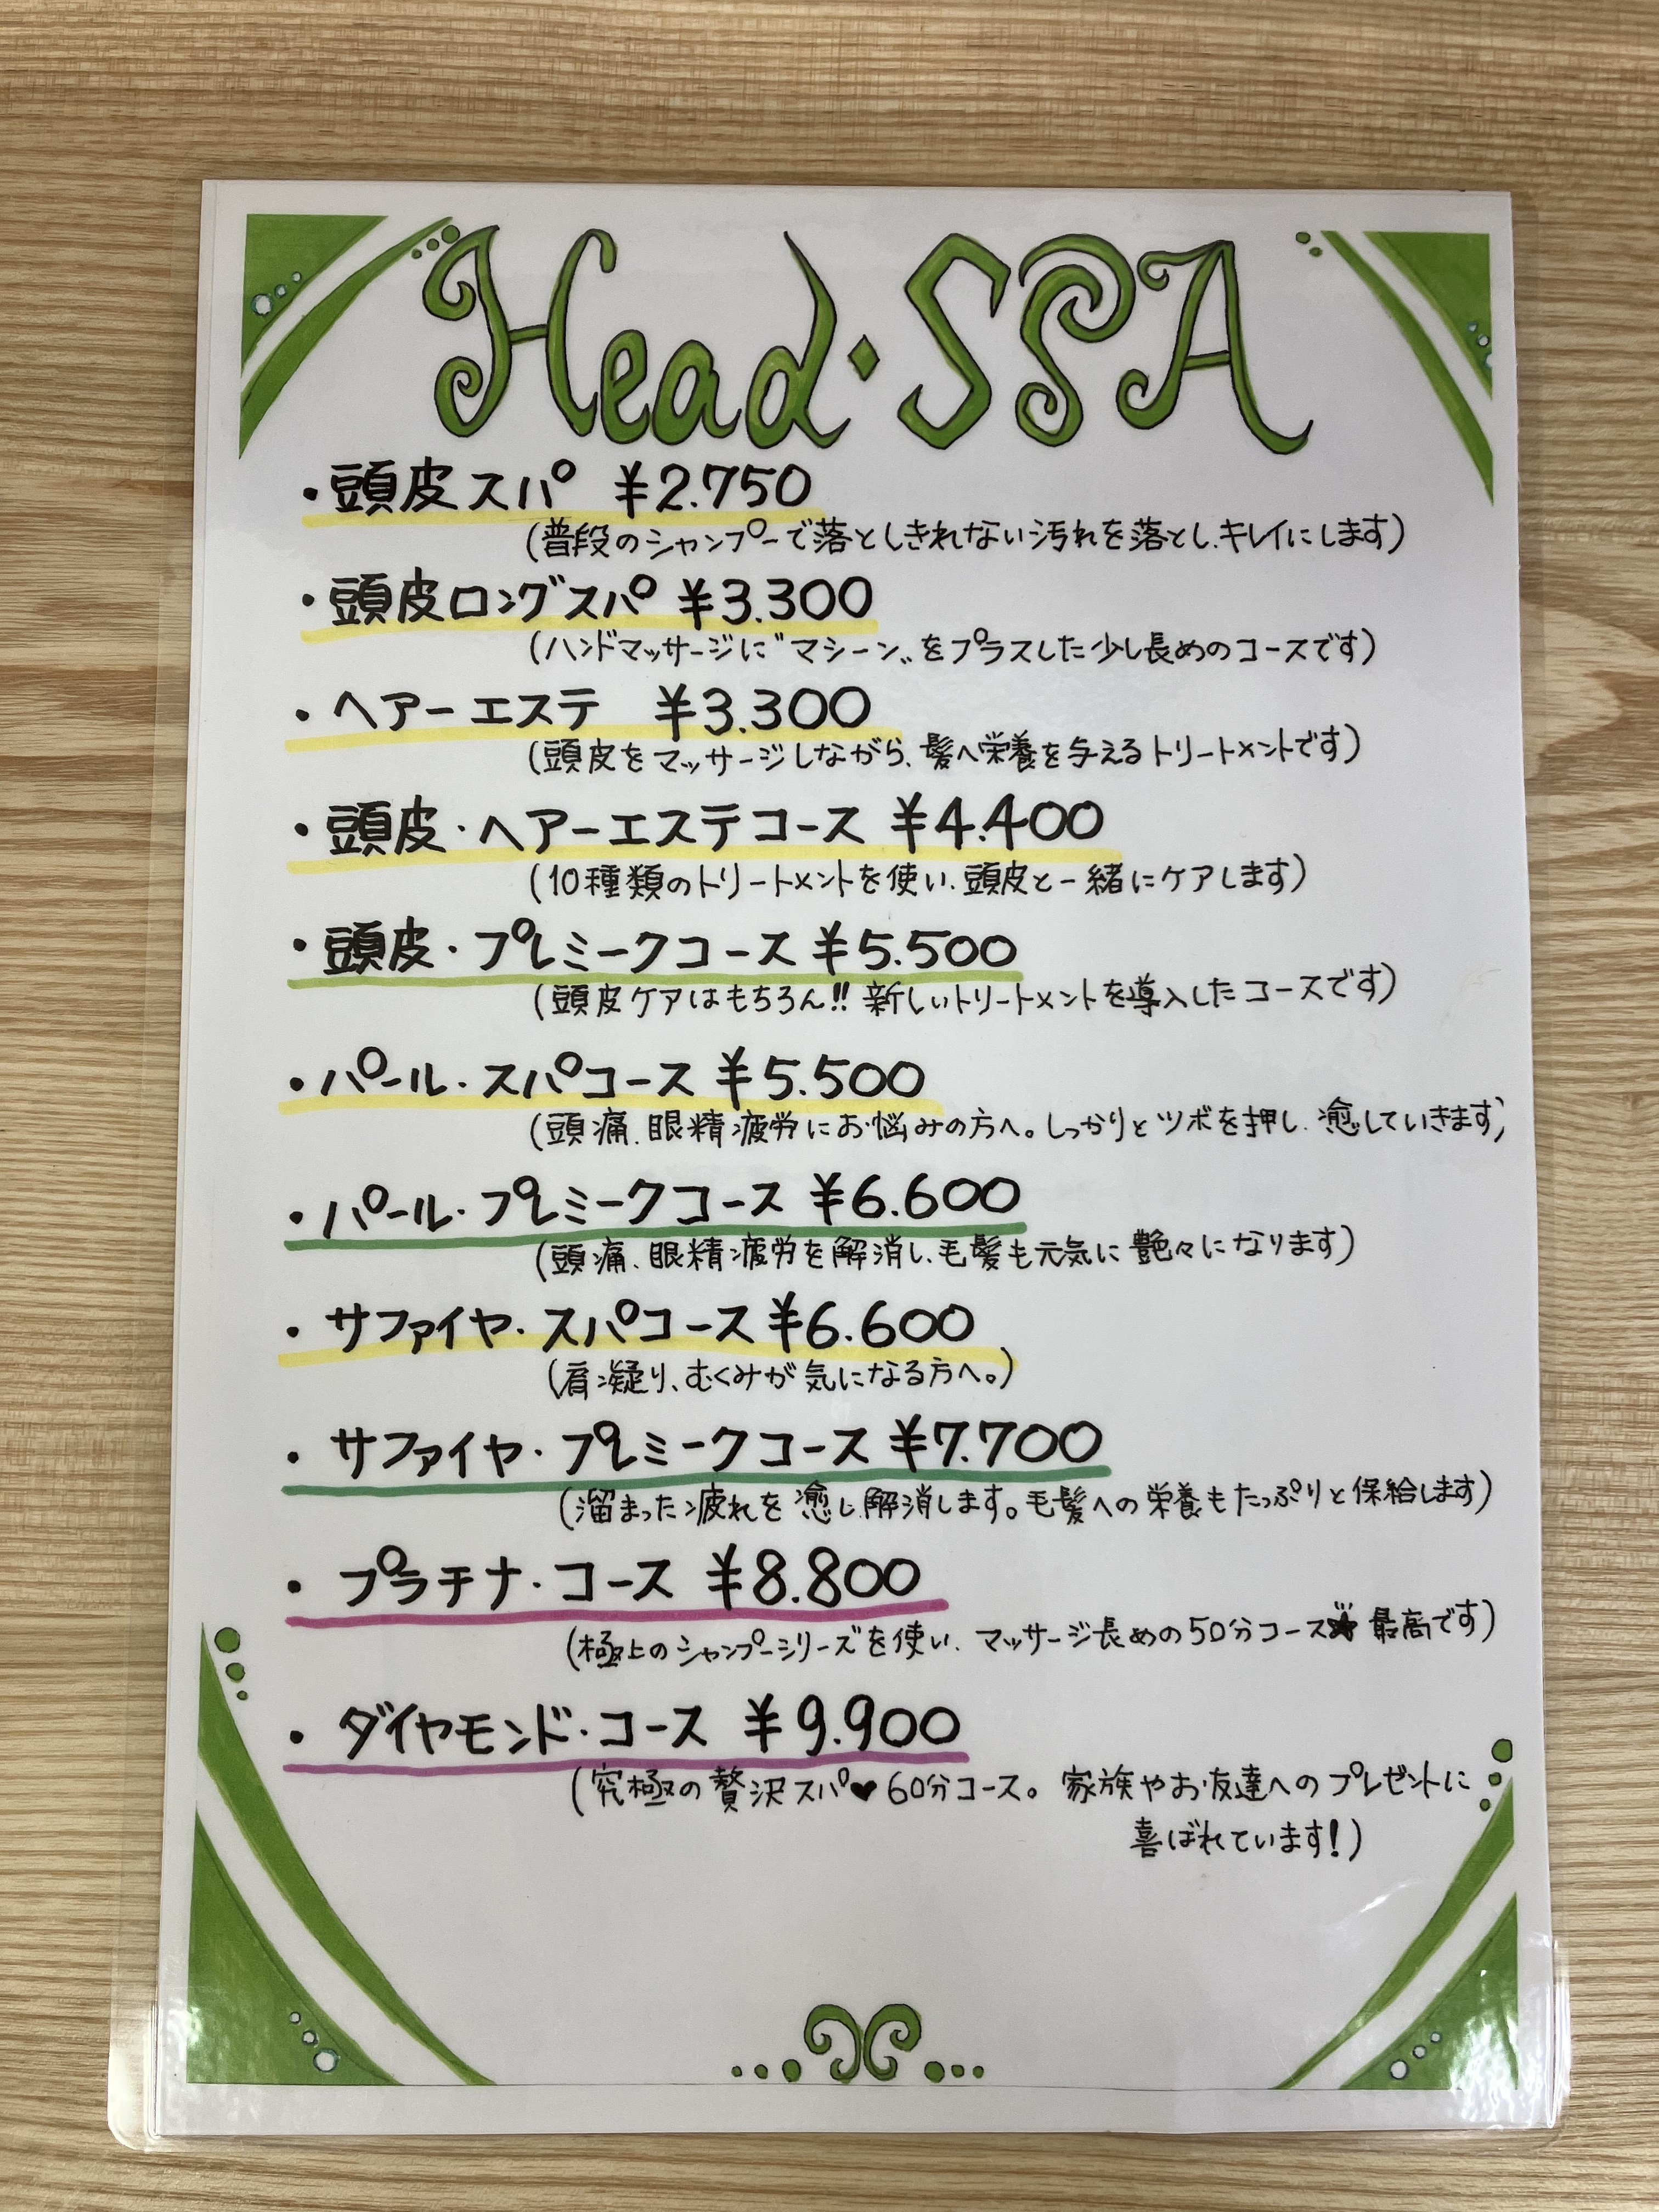 Head・SPA
・頭皮スパ ¥2.750
(普段のシャンプーで落としきれない汚れを落とし、キレイにします)
・頭皮ロングスパ ¥3.300
(ハンドマッサージに〝マシーン〟をプラスした少し長めのコースです)
・ヘアーエステ ¥3.300
(頭皮をマッサージしながら、髪へ栄養を与えるトリートメントです)
・頭皮・ヘアーエステコース ¥4.400
(10種類のトリートメントを使い、頭皮と一緒にケアします)
・頭皮・プレミークコース ¥5.500
(頭皮ケアはもちろん!! 新しいトリートメントを導入したコースです)
・パール・スパコース ¥5.500
(頭痛、眼精疲労にお悩みの方へ。しっかりとツボを押し、癒していきます)
・パール・プレミークコース ¥6.600
(頭痛、眼精疲労を解消し、毛髪も元気に艶々になります)
・サファイヤ・スパコース ¥6.600
(肩凝り、むくみが気になる方へ。)
・サファイヤ・プレミークコース ¥7.700
(溜まった疲れを癒し、解消します。毛髪への栄養もたっぷりと保給します)
・プラチナ・コース ¥8.800
(極上のシャンプーシリーズを使い、マッサージ長めの50分コース★ 最高です)
・ダイヤモンド・コース ¥9.900
(究極の贅沢スパ♥60分コース。家族やお友達へのプレゼントに
喜ばれています!)